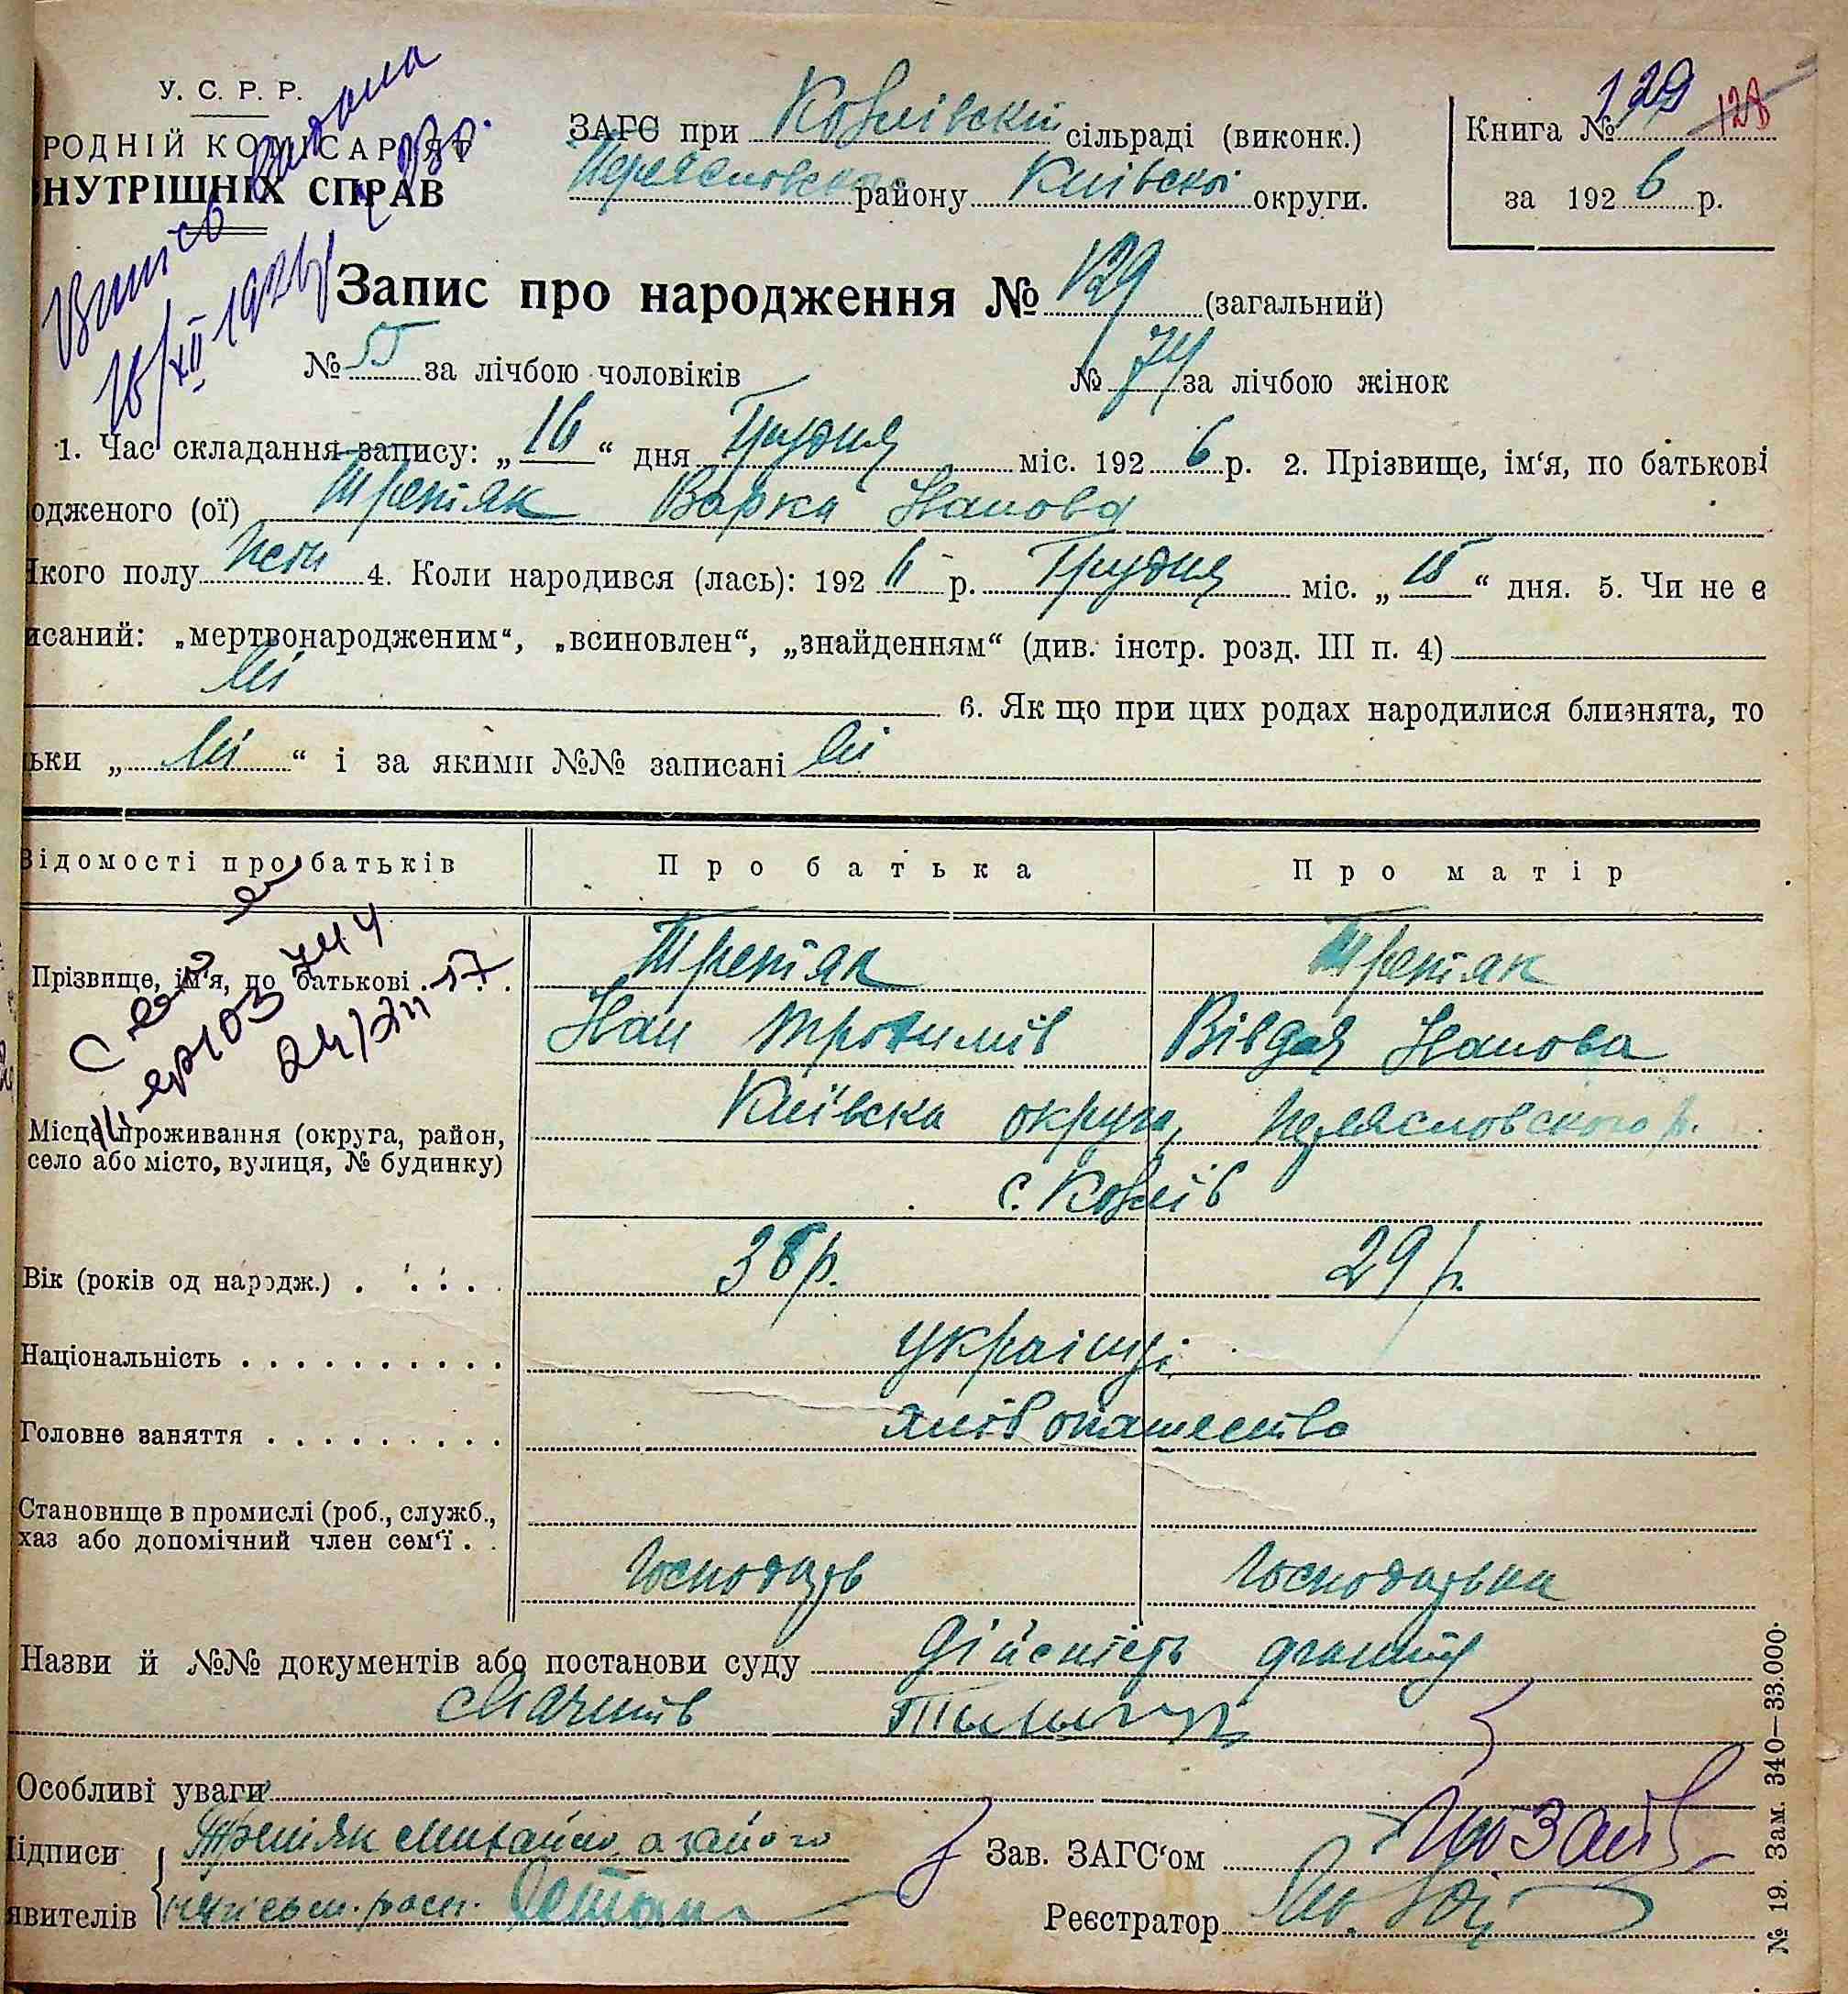 У. С. Р. Р.
РОДНІЙ КОМІСАРІЯТ
ВНУТРІШНІХ СПРАВ
Витяг видана
16/XII 1926 р.
ЗАГС при Козлівскій сільраді (виконк.)
Переясловского району Київскої округи.
Книга № 129 128
за 1926 р.
Запис про народження № 129 (загальний)
№ 55 за лічбою чоловіків № 74 за лічбою жінок
1. Час складання запису: „16“ дня Грудня міс. 1926 р. 2. Прізвище, ім‘я, по батькові
одженого (ої) Третяк Варка Іванова
якого полу жін 4. Коли народився (лась): 1926 р. Грудня міс. „15“ дня. 5. Чи не є
исаний: „мертвонародженим“, „всиновлен“, „знайденням“ (див. інстр. розд. III п. 4)
Ні
6. Як що при цих родах народилися близнята, то
ьки „ Ні “ і за якими №№ записані Ні
Відомості про батьків Про батька Про матір
Прізвище, ім‘я, по батькові Третяк Третяк
Іван Трохимів Вівдя Іванова
103 744
24/XII 57
Місце проживання (округа, район, село або місто, вулиця, № будинку) Київска округа, Переясловского р.
с. Козлів
Вік (років од народж.) 38 р. 29 р.
Національність українці
Головне заняття хлібопашество
Становище в промислі (роб., служб.,
хаз або допомічний член сем‘ї
Господарь Господарька
Назви й №№ документів або постанови суду Дійсність
Особливі уваги
Підписи Третяк Михайло а за його
явителів непісьм. росп.
Зав. ЗАГС‘ом
Реєстратор
№ 19. Зам. 340—33.000.